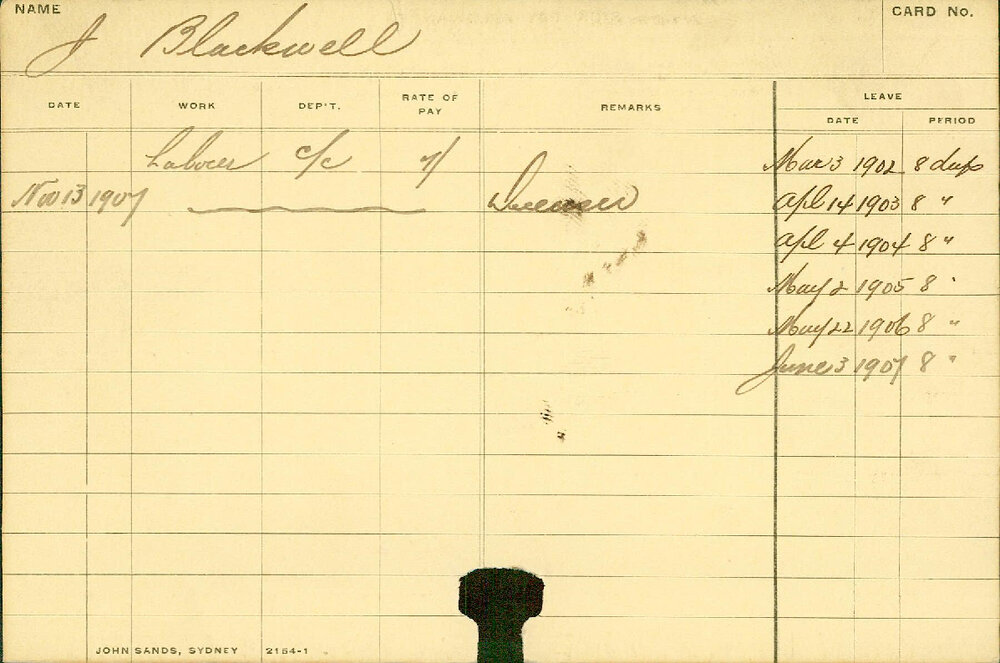 NAME
CARD No.
J Blackwell
DATE WORK DEP'T. RATE OF PAY REMARKS LEAVE
DATE PERIOD
Labour c/c 7/ Mar 3 1902 8 days
Nov 13 1907 Apl 14 1903 8 "
Apl 4 1904 8 "
May 2 1905 8 "
May 22 1906 8 "
June 3 1907 8 "
JOHN SANDS, SYDNEY 2154-1